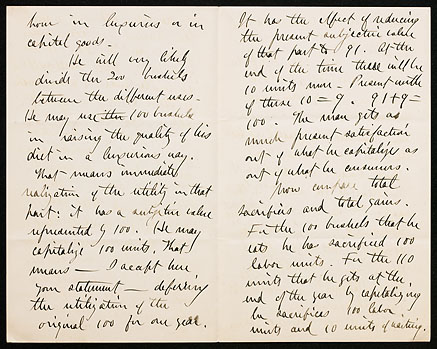 born in luxuries or in
capital goods.
He will very likely
divide the 200 bushels
between the different uses.
He may use the 100 bushels
in raising the quality of his
diet in a luxurious way.
That means immediate
realization of the utility in that
part: it has a subjective value
represented by 100. He may
capitalize 100 units. That
means — I accept here
your statement — deferring
the utilization of the
original 100 for one year.
It has the effect of reducing
the present subjective value
of that part to 91. At the
end of the time there will be
10 units more - Present worth
of those 10 = 9. 91+9=
100. The man gets as
much present satisfaction
out of what he capitalizes as
out of what he consumes.
Now compare total
sacrifices and total gains.
For the 100 bushels that he
eats he has sacrificed 100
labor units. For the 110
units that he gets at the
end of the year by capitalizing
he sacrifices 100 labor
units and 10 units of waiting.